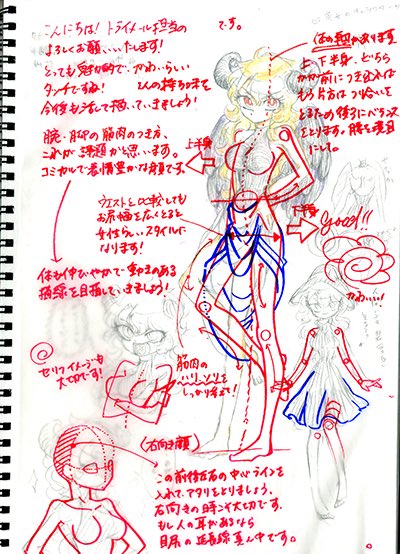 こんにちは！トライメール担当の
です。
よろしくお願いいたします！
とっても魅力的で、かわいらしい
タッチですね！
の持ち味を
今後も活して描いていきましょう！
体の軸があります
上、下半身、どちら
かが前につき出れば
もう片方はつり合いを
とるため後ろにバランス
をとります。腰を境目
にして。
腕・脚の筋肉のつき方、
これが課題かと思います。
コミカルで表情豊かな顔です。
上半身
下半身
Good!!
ウエストと比較しても
お尻の幅を広くとると
女性らしいスタイルに
なります！
体も伸びやかで動きのある
描線を目指していきましょう！
かわいい！
セリフイメージも
大切です！
筋肉の
メリハリを
しっかり考えて！
（右向き顔）
この前後左右の中心ラインを
入れて、アタリをとりましょう。
右向きの時こそ大切です。
もし人の耳があるなら
目尻の延長線真ん中です。